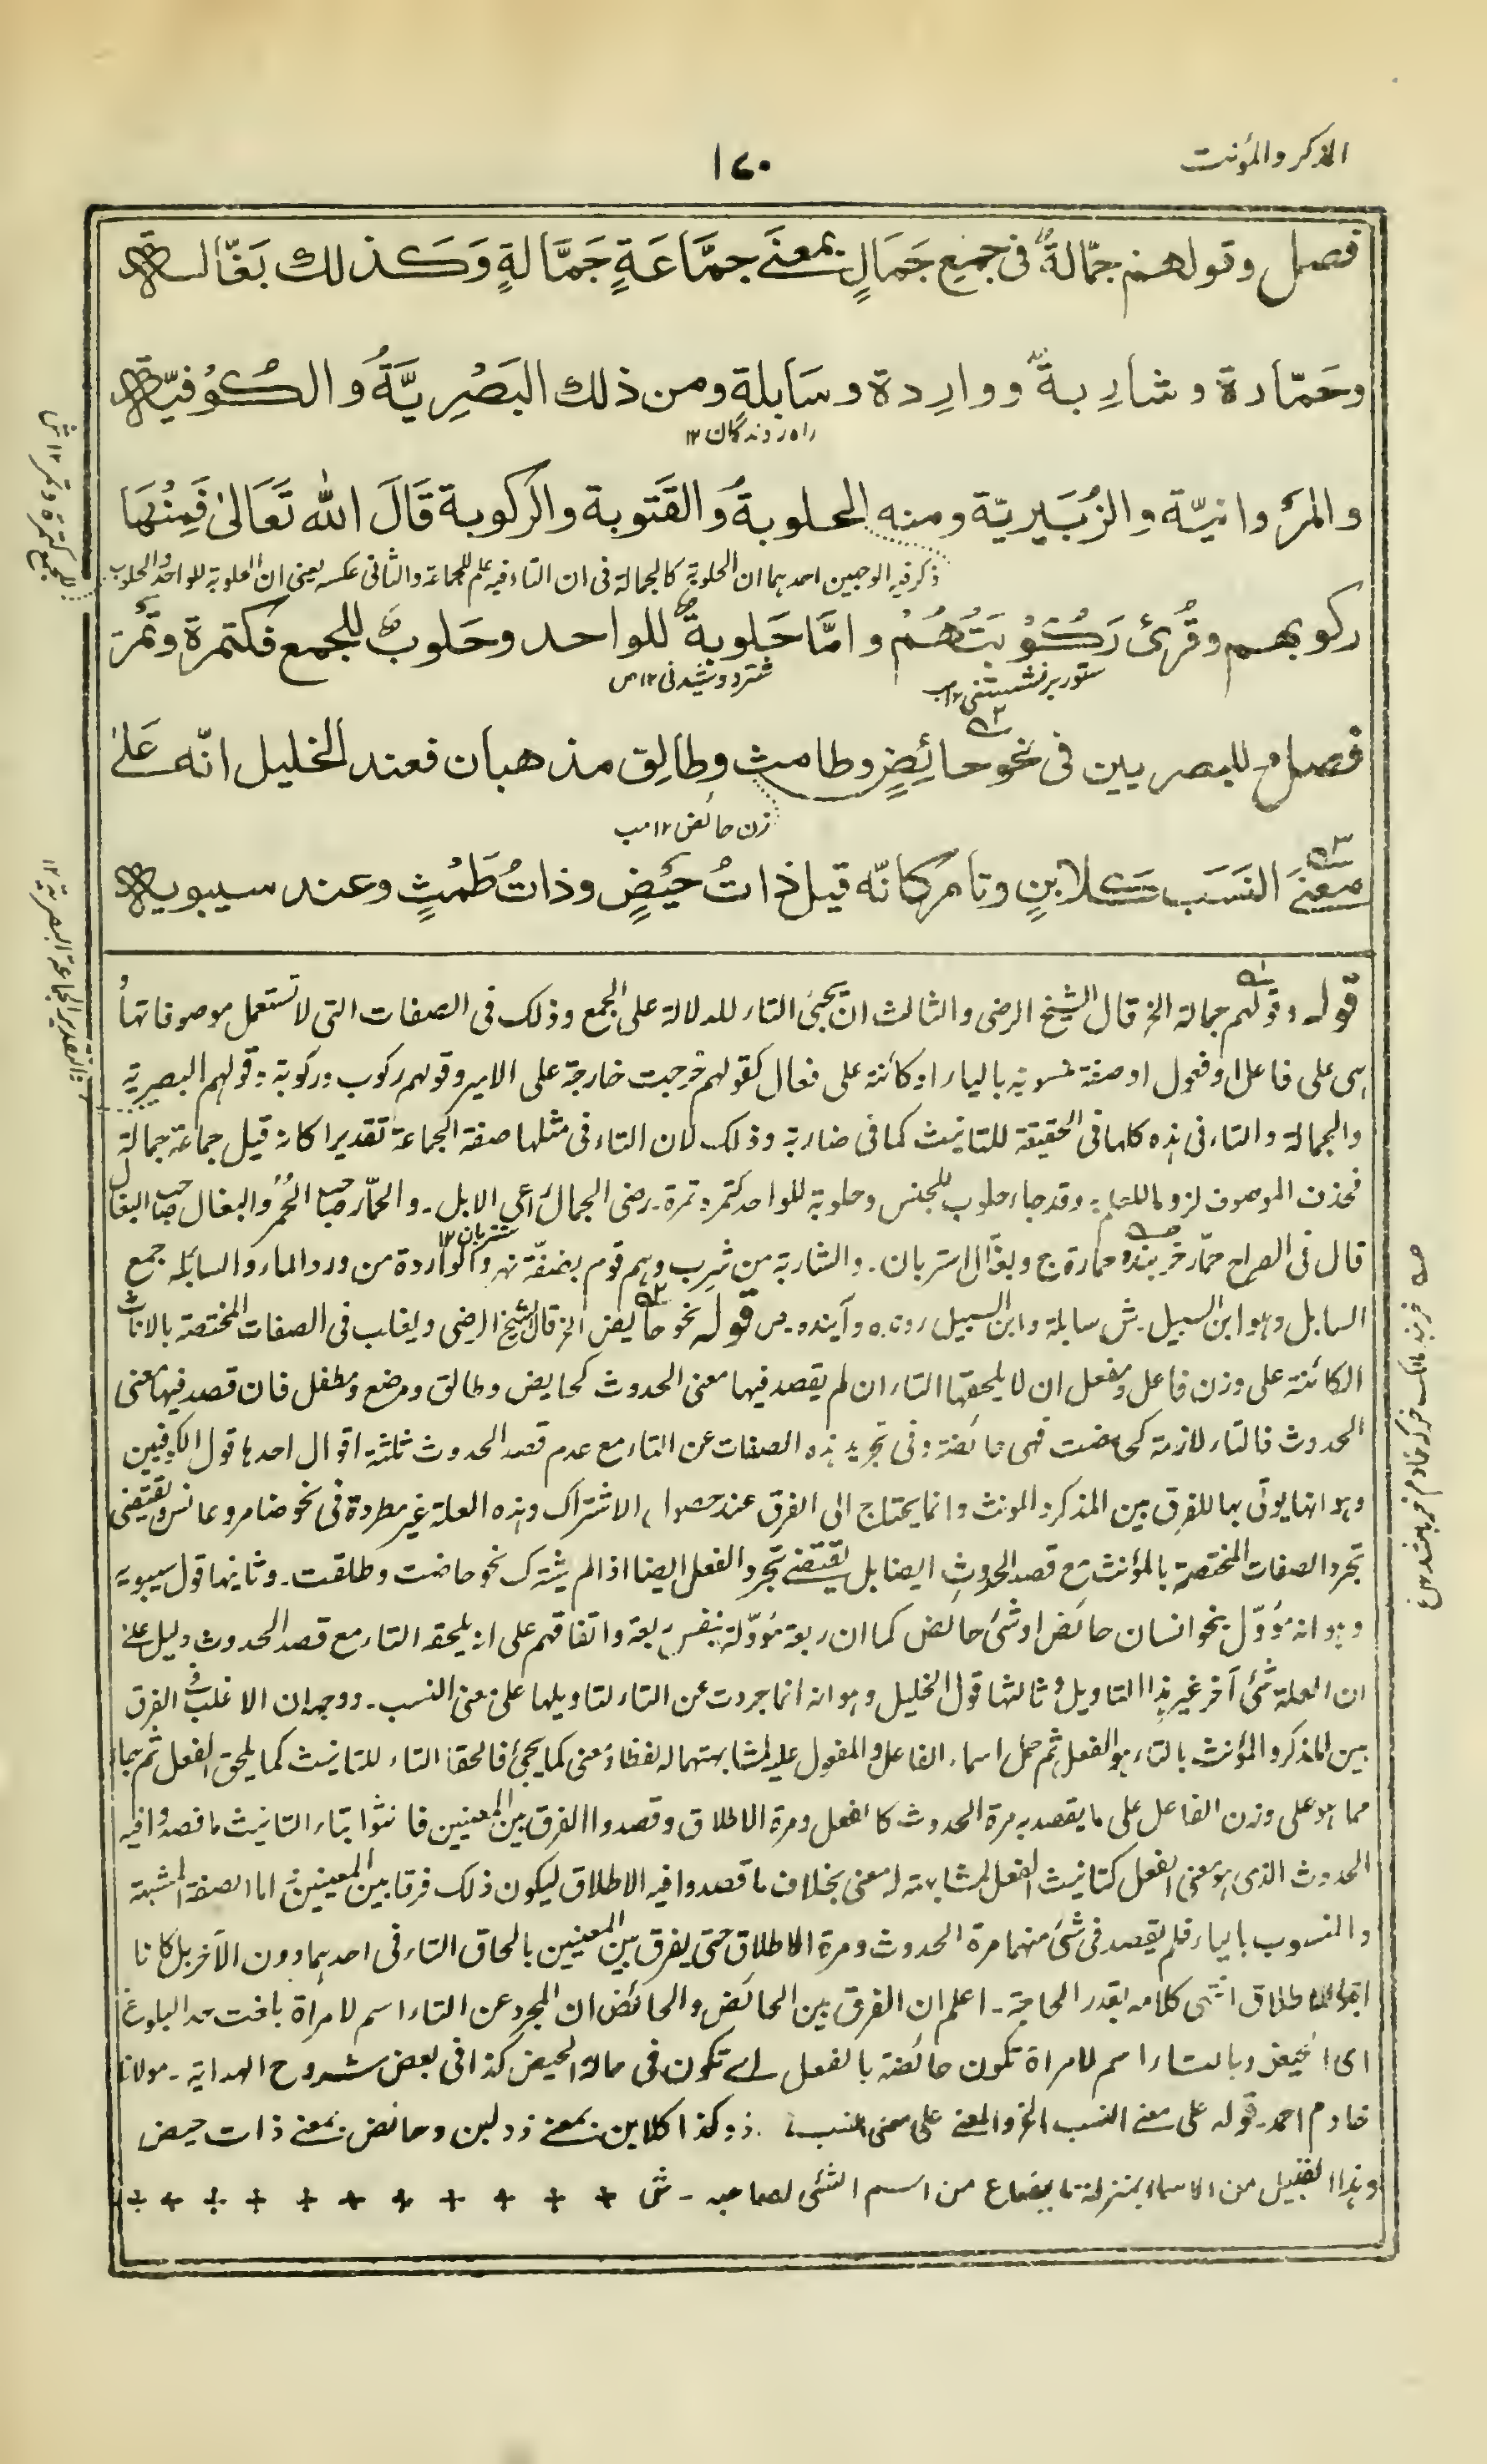 المذكر والمؤنث
١٧٠
فصل وقولهم جمّالةٌ في جميع جَمَالٍ بمعنَى جمَّاعَةٍ جَمَّالةٍ وَكَذلك بَغّالة
وحَمّارة وشارِبةٌ ووارِدة وسَابلةٍ ومن ذلك البَصْرِيَّةُ والكُوفيّة
راه روندگان ١٢
والمرْوانيّة والزُبَيريّة ومنه الحلوبةُ والقَتوبة والركوبة قَالَ الله تَعَالىٰ فَمِنْهَا
ذكر فيه الوجهين احدهما ان الحلوبة كالجمالة فى ان التاء فيه علم للجماعة والثانى عكسه يعنى ان الحلوبة للواحد والحلوب
للجمع كتمرة وتمر ١٢ ش
ركوبهم وقُرئ رَكُوْبَتُهُمْ وامَّا حَلوبةٌ للواحد وحَلوبٌ للجمع فكتمرة وتَمْر
ستور برنشستنى ١٢ ب
شتر دوشيدنى ١٢ ص
فصل للبصريين فى نحو حائِضٍ وطامث وطالِق مذهبان فعند الخليل انّه عَلىٰ
زن حائض ١٢ مب
معنَى النَسَب كلابنٍ وتامرٍ كانّه قيل ذاتُ حَيْضٍ وذاتُ طَمْثٍ وعند سيبويه
قوله وقولهم جمالة الخ قال الشيخ الرضى والثالث ان يجئ التاء للدلالة على الجمع وذلك فى الصفات التى لا تستعمل موصوفاتها
هى على فاعل او فعول او صفة منسوبة بالياء او كائنة على فعال كقولهم خرجت خارجة على الامير وقولهم ركوب وركوبة وقولهم البصرية
والجمالة والتاء فى هذه كلها فى الحقيقة للتانيث كما فى ضاربة وذلك لان التاء فى مثلها صفة الجماعة تقديرا كانه قيل جماعة جمالة
فحذف الموصوف لزوما للعلم به وقد جاء حلوب للجنس وحلوبة للواحد كتمر وتمرة رضى الجمال راعى الابل ـ والحمّار صاحب الحُمُر والبغال صاحب البغال
شتربان ١٢
قال فى الصراح حمّار خربنده حمارة ج وبغّال استربان ـ والشاربة من شرب وهم قوم بضفّة نهر والواردة من ورد الماء والسابلة جمع
السابل وهو ابن السبيل ش سابلة وابن السبيل رونده وآينده ص قوله نحو حايض الخ قال الشيخ الرضى ويغلب فى الصفات المختصة بالاناث
الكائنة على وزن فاعل ومفعل ان لا يلحقها التاء ان لم يقصد فيها معنى الحدوث كحايض وطالق ومرضع ومطفل فان قصد فيها معنى
الحدوث فالتاء لازمة كحاضت فهى حائضة وفى تجريد هذه الصفات عن التاء مع عدم قصد الحدوث ثلثة اقوال احدها قول الكوفيين
وهو انها يوتى بها للفرق بين المذكر والمونث وانما يحتاج الى الفرق عند حصول الاشتراك وهذه العلة غير مطردة فى نحو ضامر وعانس ويقتضى
تجرد الصفات المختصة بالمؤنث مع قصد الحدوث ايضا بل يقتضے تجرد الفعل ايضا اذا لم يشترك نحو حاضت وطلقت ـ وثانيها قول سيبويه
وهو انه مؤوّل بنحو انسان حائض او شئ حائض كما ان ربعة مؤوّلة بنفس ربعة واتفاقهم على انه يلحقه التاء مع قصد الحدوث دليل على
ان العلة شئ آخر غير هذا التاويل وثالثها قول الخليل وهو انه انما جردت عن التاء لتاويلها على معنى النسب ـ ووجهه ان الاغلب فى الفرق
بين المذكر والمؤنث بالتاء هو الفعل ثم حمل اسماء الفاعل والمفعول عليه لمشابهتهما له لفظا ومعنى كما يجئ فالحقا التاء للتانيث كما يلحق الفعل ثم جاء
مما هو على وزن الفاعل على ما يقصد به مرة الحدوث كالفعل ومرة الاطلاق وقصدوا الفرق بين المعنيين فانثوا بتاء التانيث ما قصدوا فيه
الحدوث الذى هو معنى الفعل كتانيث الفعل لمشابهته له معنى بخلاف ما قصدوا فيه الاطلاق ليكون ذلك فرقا بين المعنيين واما الصفة المشبهة
والمنسوب بالياء فلم يقصد فى شئ منهما مرة الحدوث ومرة الاطلاق حتى يفرق بين المعنيين بالحاق التاء فى احدهما دون الآخر بل كانا
للاطلاق انتهى كلامه بقدر الحاجة ـ اعلم ان الفرق بين الحائض والحائضة ان المجرد عن التاء اسم لامراة بلغت حد البلوغ
اى الحيض وبالتاء اسم لامراة تكون حائضة بالفعل اے تكون فى حالة الحيض كذا فى بعض شروح الهداية ـ مولانا
خادم احمد ـ قوله على معنے النسب الخ والمعنے على معنى النسب ذو كذا كلابن بمعنے ذو لبن وحائض بمعنے ذات حيض
وهذا القبيل من الاسماء بمنزلة ما يصاغ من اسم الشئى لصاحبه ـ ش